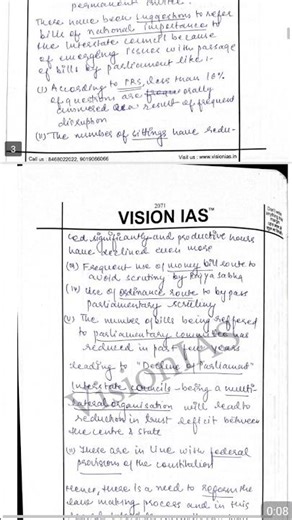 There have been suggestions to refer
bills of national importance to
the Interstate council because
of emerging issues with passage
of bills by parliament like :-
(i) According to PRS, less than 10%
of questions are orally
answered as a result of frequent
disruption
(ii) The number of sittings have redu-
3
Call us : 8468022022, 9019066066
Visit us : www.visionias.in
2071
VISION IAS™
ced significantly and productive hours
have declined even more
(iii) Frequent use of money bill route to
avoid scrutiny by Rajya Sabha
(iv) Use of ordinance route to bypass
parliamentary scrutiny
(v) The number of bills being referred
to parliamentary committee has
reduced in past few years
leading to "Decline of Parliament"
Interstate councils - being a multi-
lateral organisation will lead to
reduction in trust deficit between
the centre & state
(v) These are in line with federal
provisions of the constitution
Hence, there is a need to reform the
law making process and in this
VisionIAS
0:08